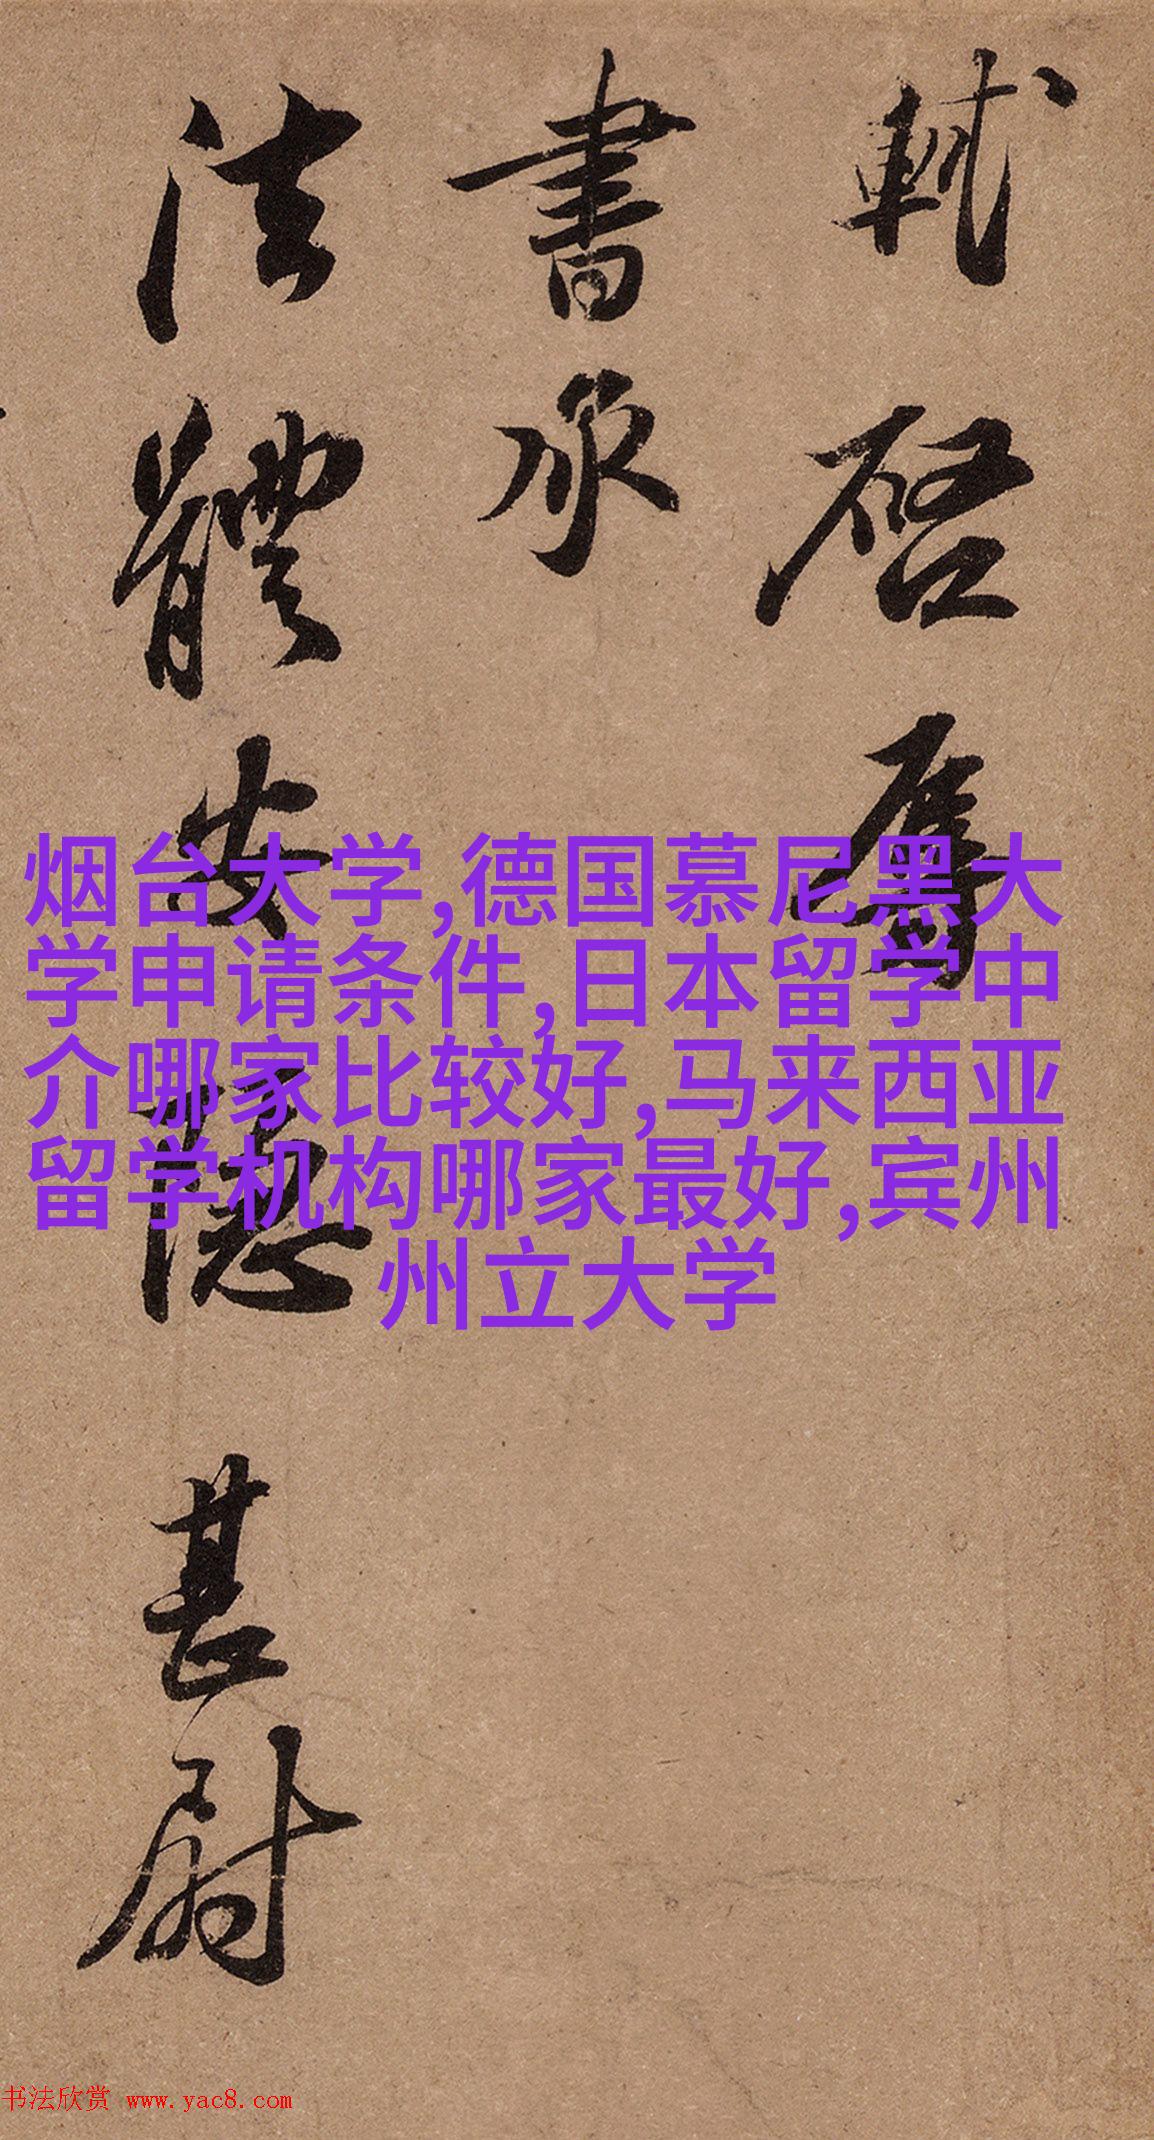 軾啓辱
書承
法體安隱甚尉
烟台大学,德国慕尼黑大
学申请条件,日本留学中
介哪家比较好,马来西亚
留学机构哪家最好,宾州
州立大学
书法欣赏 www.yac8.com